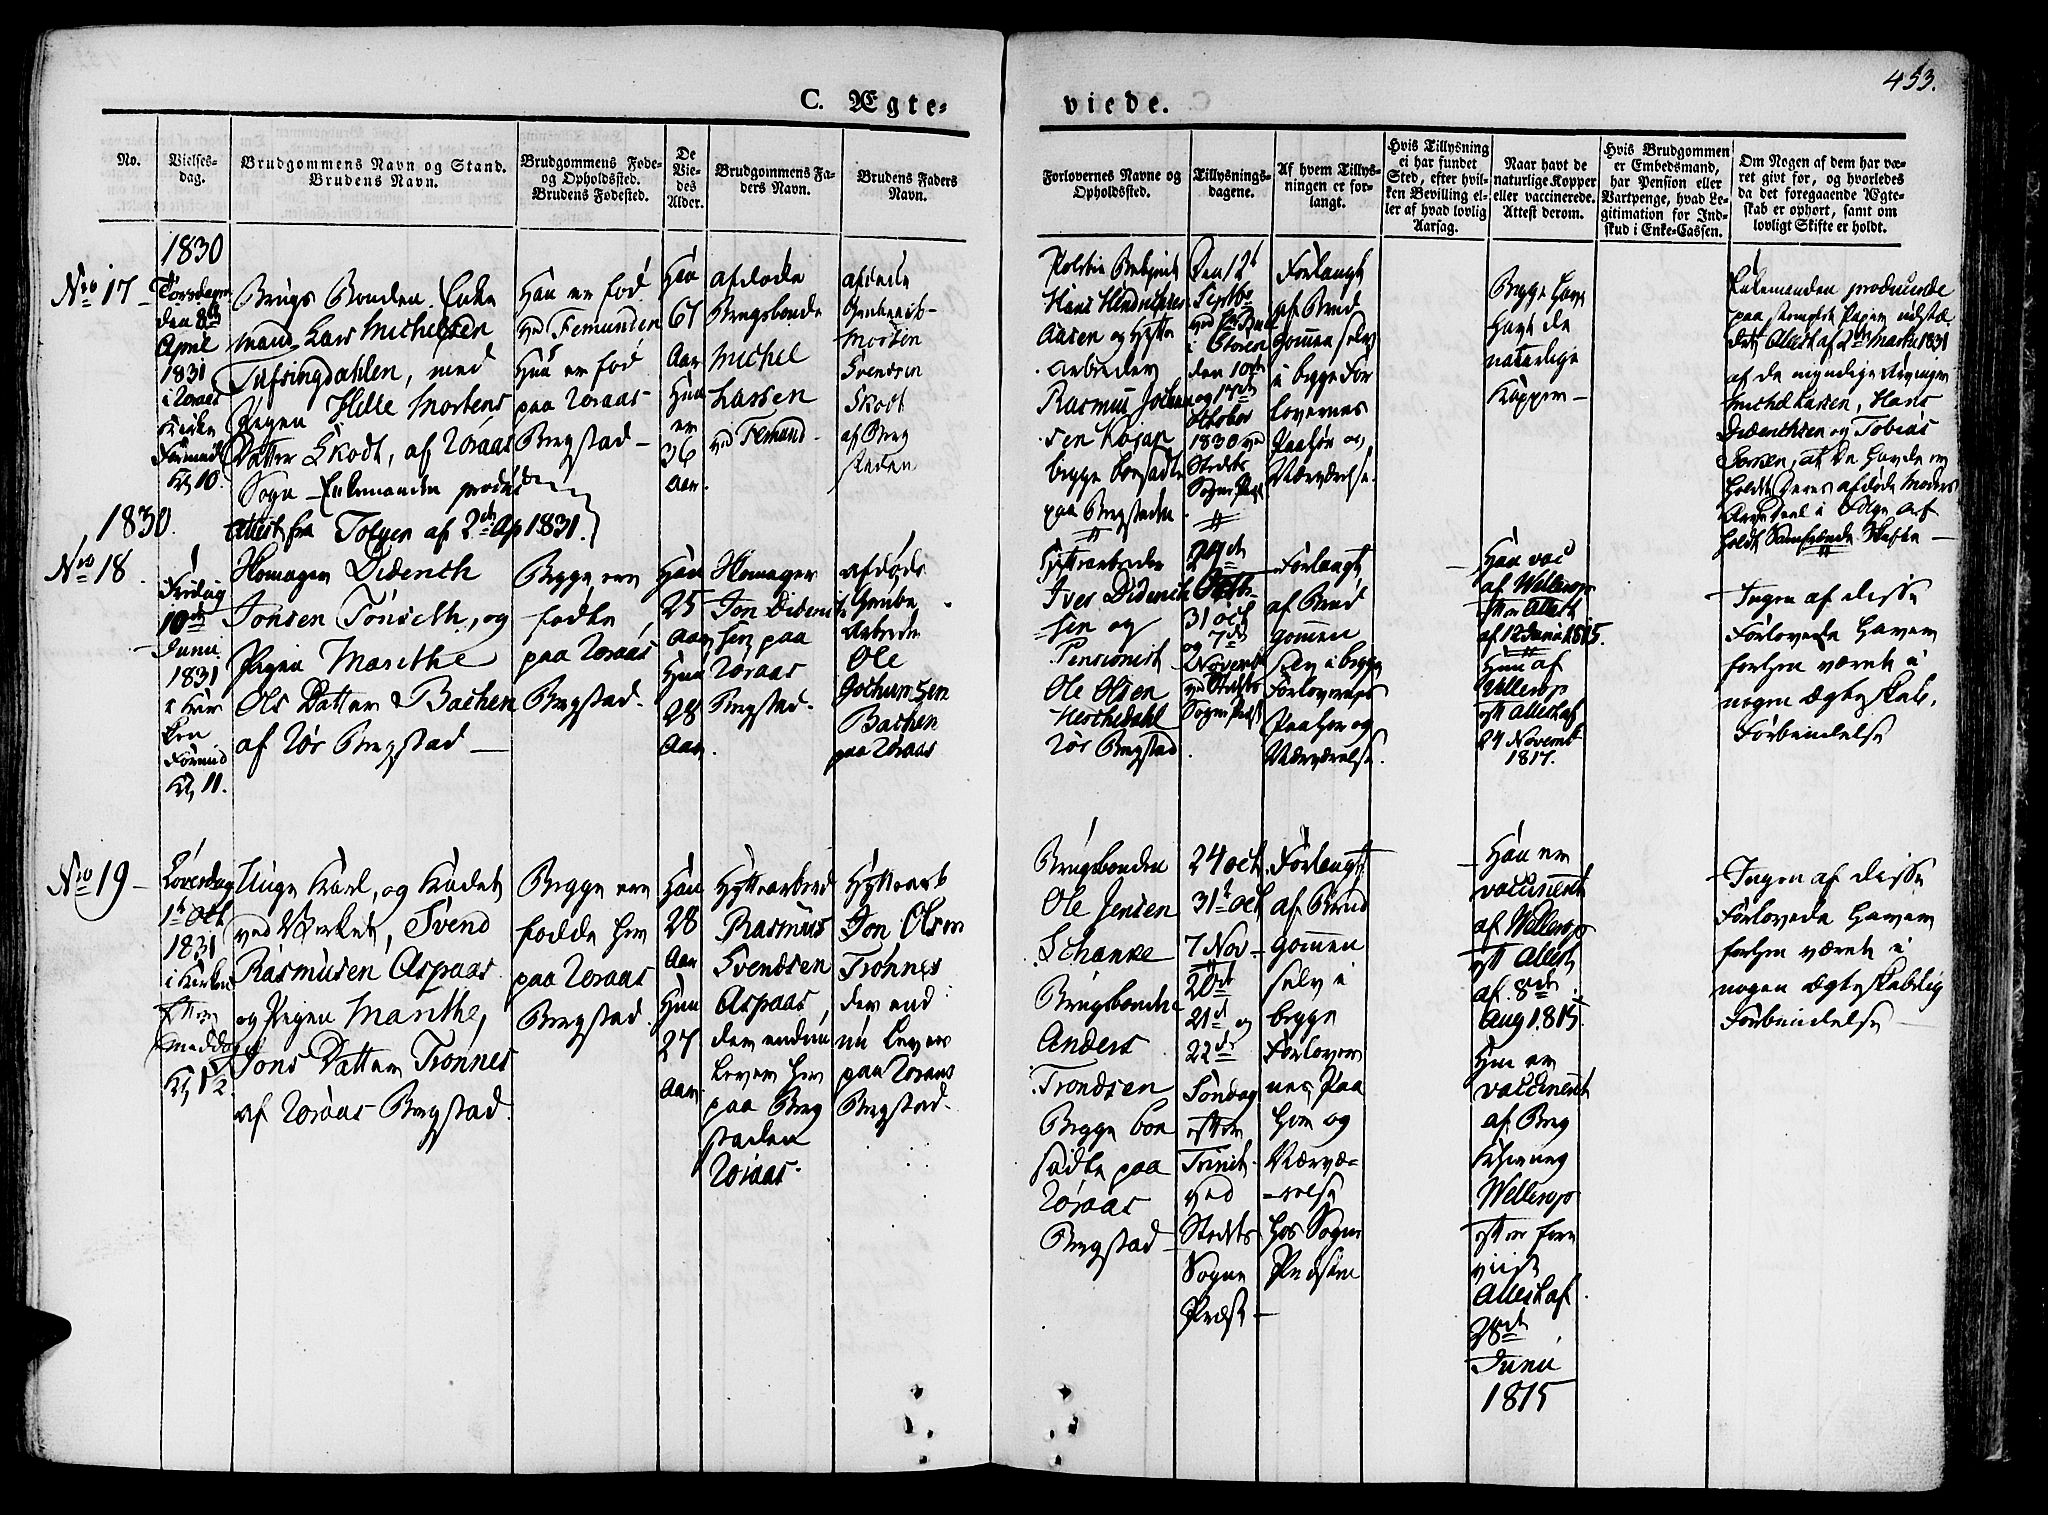 453.
C. Ægte-
viede.
No.
Vielses-
dag.
Brudgommens Navn og Stand.
Brudens Navn.
Brudgommens Føde-
og Opholdssted.
Brudens Fødested.
De
Vie-
des
Alder.
Brudgommens Fa-
ders Navn.
Brudens Faders
Navn.
Forlovernes Navne og
Opholdssted.
Tillysnings-
dagene.
Af hvem Tillys-
ningen er for-
langt.
Hvis Tillysning
ei har fundet
Sted, efter hvil-
ken Bevilling el-
ler af hvad lovlig
Aarsag.
Naar havt de
naturlige Kopper
eller vaccinerede.
Attest derom.
Hvis Brudgommen
er Embedsmand,
har Pension eller
Vartpenge, hvad Le-
gitimation for Ind-
skud i Enke-Cassen.
Om Nogen af dem har væ-
ret givt før, og hvorledes
da det foregaaende Ægte-
skab er ophørt, samt om
lovligt Skifte er holdt.
No 17
1830
Torsdagen
den 8de
April
1831
i Røraas
Kirke
Formidd
Kl 10.
Brugs Bonden Enke
mand Lars Michelsen
Tufsingdahlen, med
Pigen Hille Mortens
Datter Skodt, af Røraas
Sogn Enkemanden
Attest fra Tolgen af 2den Ap 1831.
Han er fød
ved Femunden
Hun er fød
paa Røraas
Bergstad
Han
67
Aar
Hun
er
36
Aar.
afdøde
Brugsbonde
Michel
Larsen
ved Femund
afdøde
Morten
Svendsen
Skodt
af Berg
staden
Hans Hendrichsen
Aasen og Hytte
arbeider
Rasmus Jochum
sen Kojan
begge bosadte
paa Bergstaden
Den 12te
Septbr
i Storen
den 10de
og 17de
October
1830 ved
Stedets
Sogne Præst
Forlangt
af Brud
gommen selv
i begge For
lovernes
Paahør og
Nærværelse.
Begge have
havt de
naturlige
Kopper
Enkemanden producerede
paa stemplet Papir udstæ
det Attest af 2den Marti 1831
af de myndige Arvinger
Michel Larsen, Hans
Diderichsen og Tobias
Larsen, at De havde er
holdt Deres afdøde Moders
Arve deel i Følge af
holdt Samfrænde Skifte
1830.
No 18.
Fredag
10de
Junii
1831
i Kir
ken
Formid
Kl 11.
Diderich
Jonsen Tønseth, og
Pigen Marithe
Ols Datter Bachen
af Rør Bergstad
Begge ere
fødte
paa Røraas
Bergstad.
Han
25
Aar
Hun
28
Aar.
Jon Diderich
sen paa
Røraas
Bergstad.
afdøde
Grube
Arbeider
Ole
Jochumsen
Bachen
paa Røraas
Hyttearbeider
Iver Diderich
sen og
Pensionist
Ole Olsen
Herschedahl
Rør Bergstad
24de
Octbr
31 Oct
og 7de
Novemb
ved Stedets
Sogne Præst
Forlangt
af Brud
gommen
selv i begge
Forlovernes
Paahør og
Nærværelse.
Han vac
af Wellerop
efter Attest
af 12 Junii 1815.
Hun af
Wellerop
eft Attest af
24 Novembr
1817.
Ingen af disse
Forlovede haver
forhen været i
nogen Ægteskabs
Forbindelse
No 19
Løverdag
1te Oct
1831
i Kirken
Efter
middag
Kl 1½
Unge Karl, og Kudsk
ved Værket, Svend
Rasmusen Aspaas
og Pigen Marithe,
Jons Datter Trønnes
af Røraas Bergstad.
Begge ere
fødde her
paa Røraas
Bergstad.
Han
28
Aar
Hun
27
Aar.
Hyttearbeid
Rasmus
Svendsen
Aspaas,
der endnu
lever her
paa Berg
staden
Røraas.
Hyttearb
Jon Olsen
Trønnes
der end
nu lever
paa Røraas
Bergstad.
Brugsbonden
Ole Jensen
Schanke
Brugsbonden
Anders
Trondsen
Begge boe
sadte paa
Røraas
Bergstad
24 Oct
31te Oct
7 Nov
20de
21de og
22de
Søndag
efter
Trinit
ved
Stedets
Sogne
Præst
Forlangt
af Brud
gommen
selv i
begge
Forlover
nes Paa
hør og
Nærvæ-
relse
hos Sogne
Præsten
Han er
vaccineret
af Wellerop
eft Attest
af 8de
Aug 1815.
Hun er
vaccineret
af Berg
Chirurg
Wellerop
efter fore
viist
Attest af
28de
Junii
1815
Ingen af disse
Forlovede haver
forhen været i
nogen Ægteskabelig
Forbindelse